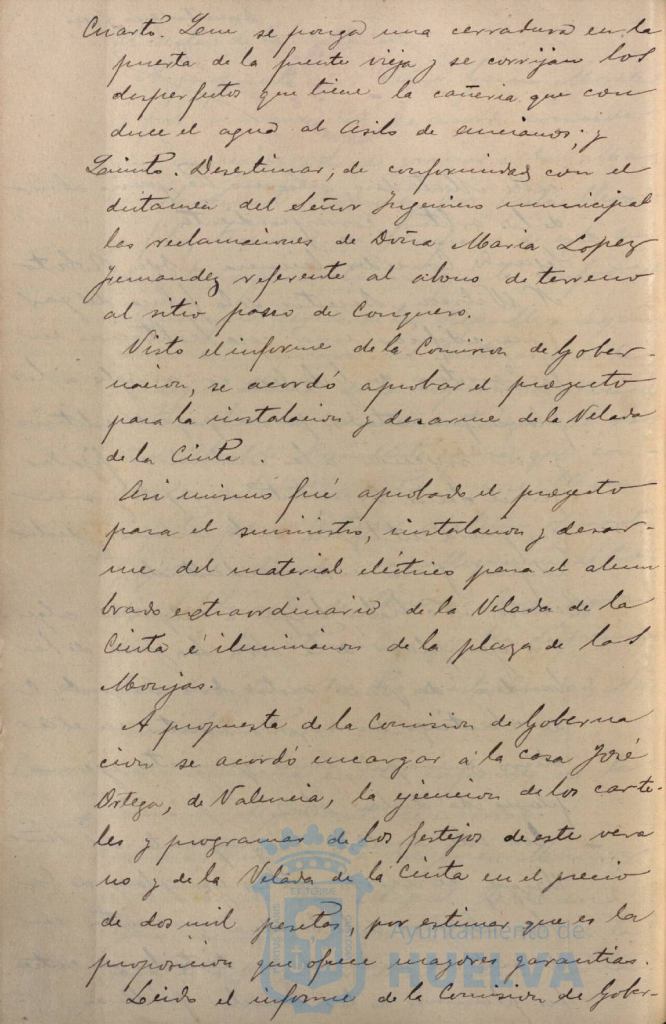 Cuarto. Que se ponga una cerradura en la
puerta de la fuente vieja y se corrijan los
desperfectos que tiene la cañeria que con
duce el agua al Asilo de ancianos; y
Quinto. Desestimar, de conformidad con el
dictamen del Señor Ingeniero municipal
las reclamaciones de Doña Maria Lopez
Fernandez referente al abono de terreno
al sitio paseo de Conquero.
Visto el informe de la Comision de Gober-
nacion, se acordó aprobar el proyecto
para la instalacion y desarme de la Velada
de la Cinta.
Asi mismo fué aprobado el proyecto
para el suministro, instalacion y desar-
me del material eléctrico para el alum
brado extraordinario de la Velada de la
Cinta é iluminacion de la plaza de las
Monjas.
A propuesta de la Comision de Goberna
cion se acordó encargar á la casa José
Ortega, de Valencia, la ejecucion de los carte-
les y programas de los festejos de este vera
no y de la Velada de la Cinta en el precio
de dos mil pesetas, por estimar que es la
proposicion que ofrece mayores garantias.
Leido el informe de la Comision de Gober-
Ayuntamiento de
HUELVA